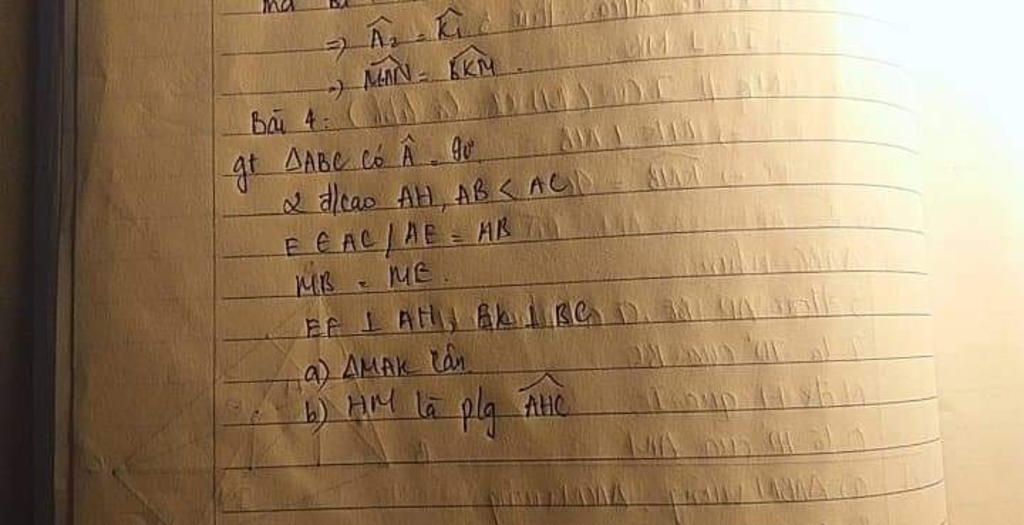 => Â₂ = K̂₁
=> MAN = BKM.
Bài 4:
gt ΔABC có Â = 90°
2 đ/cao AH, AB < AC
E ∈ AC / AE = AB
MB = ME.
EF ⊥ AH, EK ⊥ BC
a) ΔMAK cân
b) HM là p/g AHC